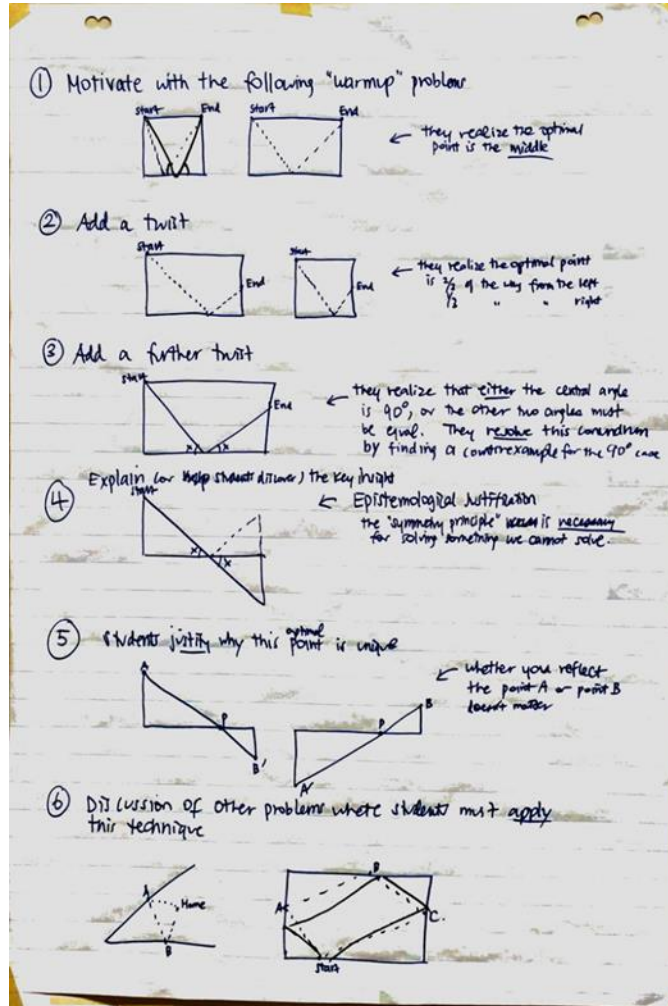 ① Motivate with the following "warmup" problems
Start
End
Start
End
← they realize the optimal
point is the middle
② Add a twist
Start
End
Start
End
← they realize the optimal point
is 2/3 of the way from the left
1/3 " " right
③ Add a further twist
Start
End
x
x
← they realize that either the central angle
is 90°, or the other two angles must
be equal. They resolve this conundrum
by finding a counterexample for the 90° case
④ Explain (or help students discover) the key insight
Start
x
x
← Epistemological Justification
the "symmetry principle" is necessary
for solving something we cannot solve.
⑤ Students justify why this optimal point is unique
A
P
B'
B
P
A'
← whether you reflect
the point A or point B
doesn't matter
⑥ Discussion of other problems where students must apply
this technique
A
Home
B
B
A
C
Start